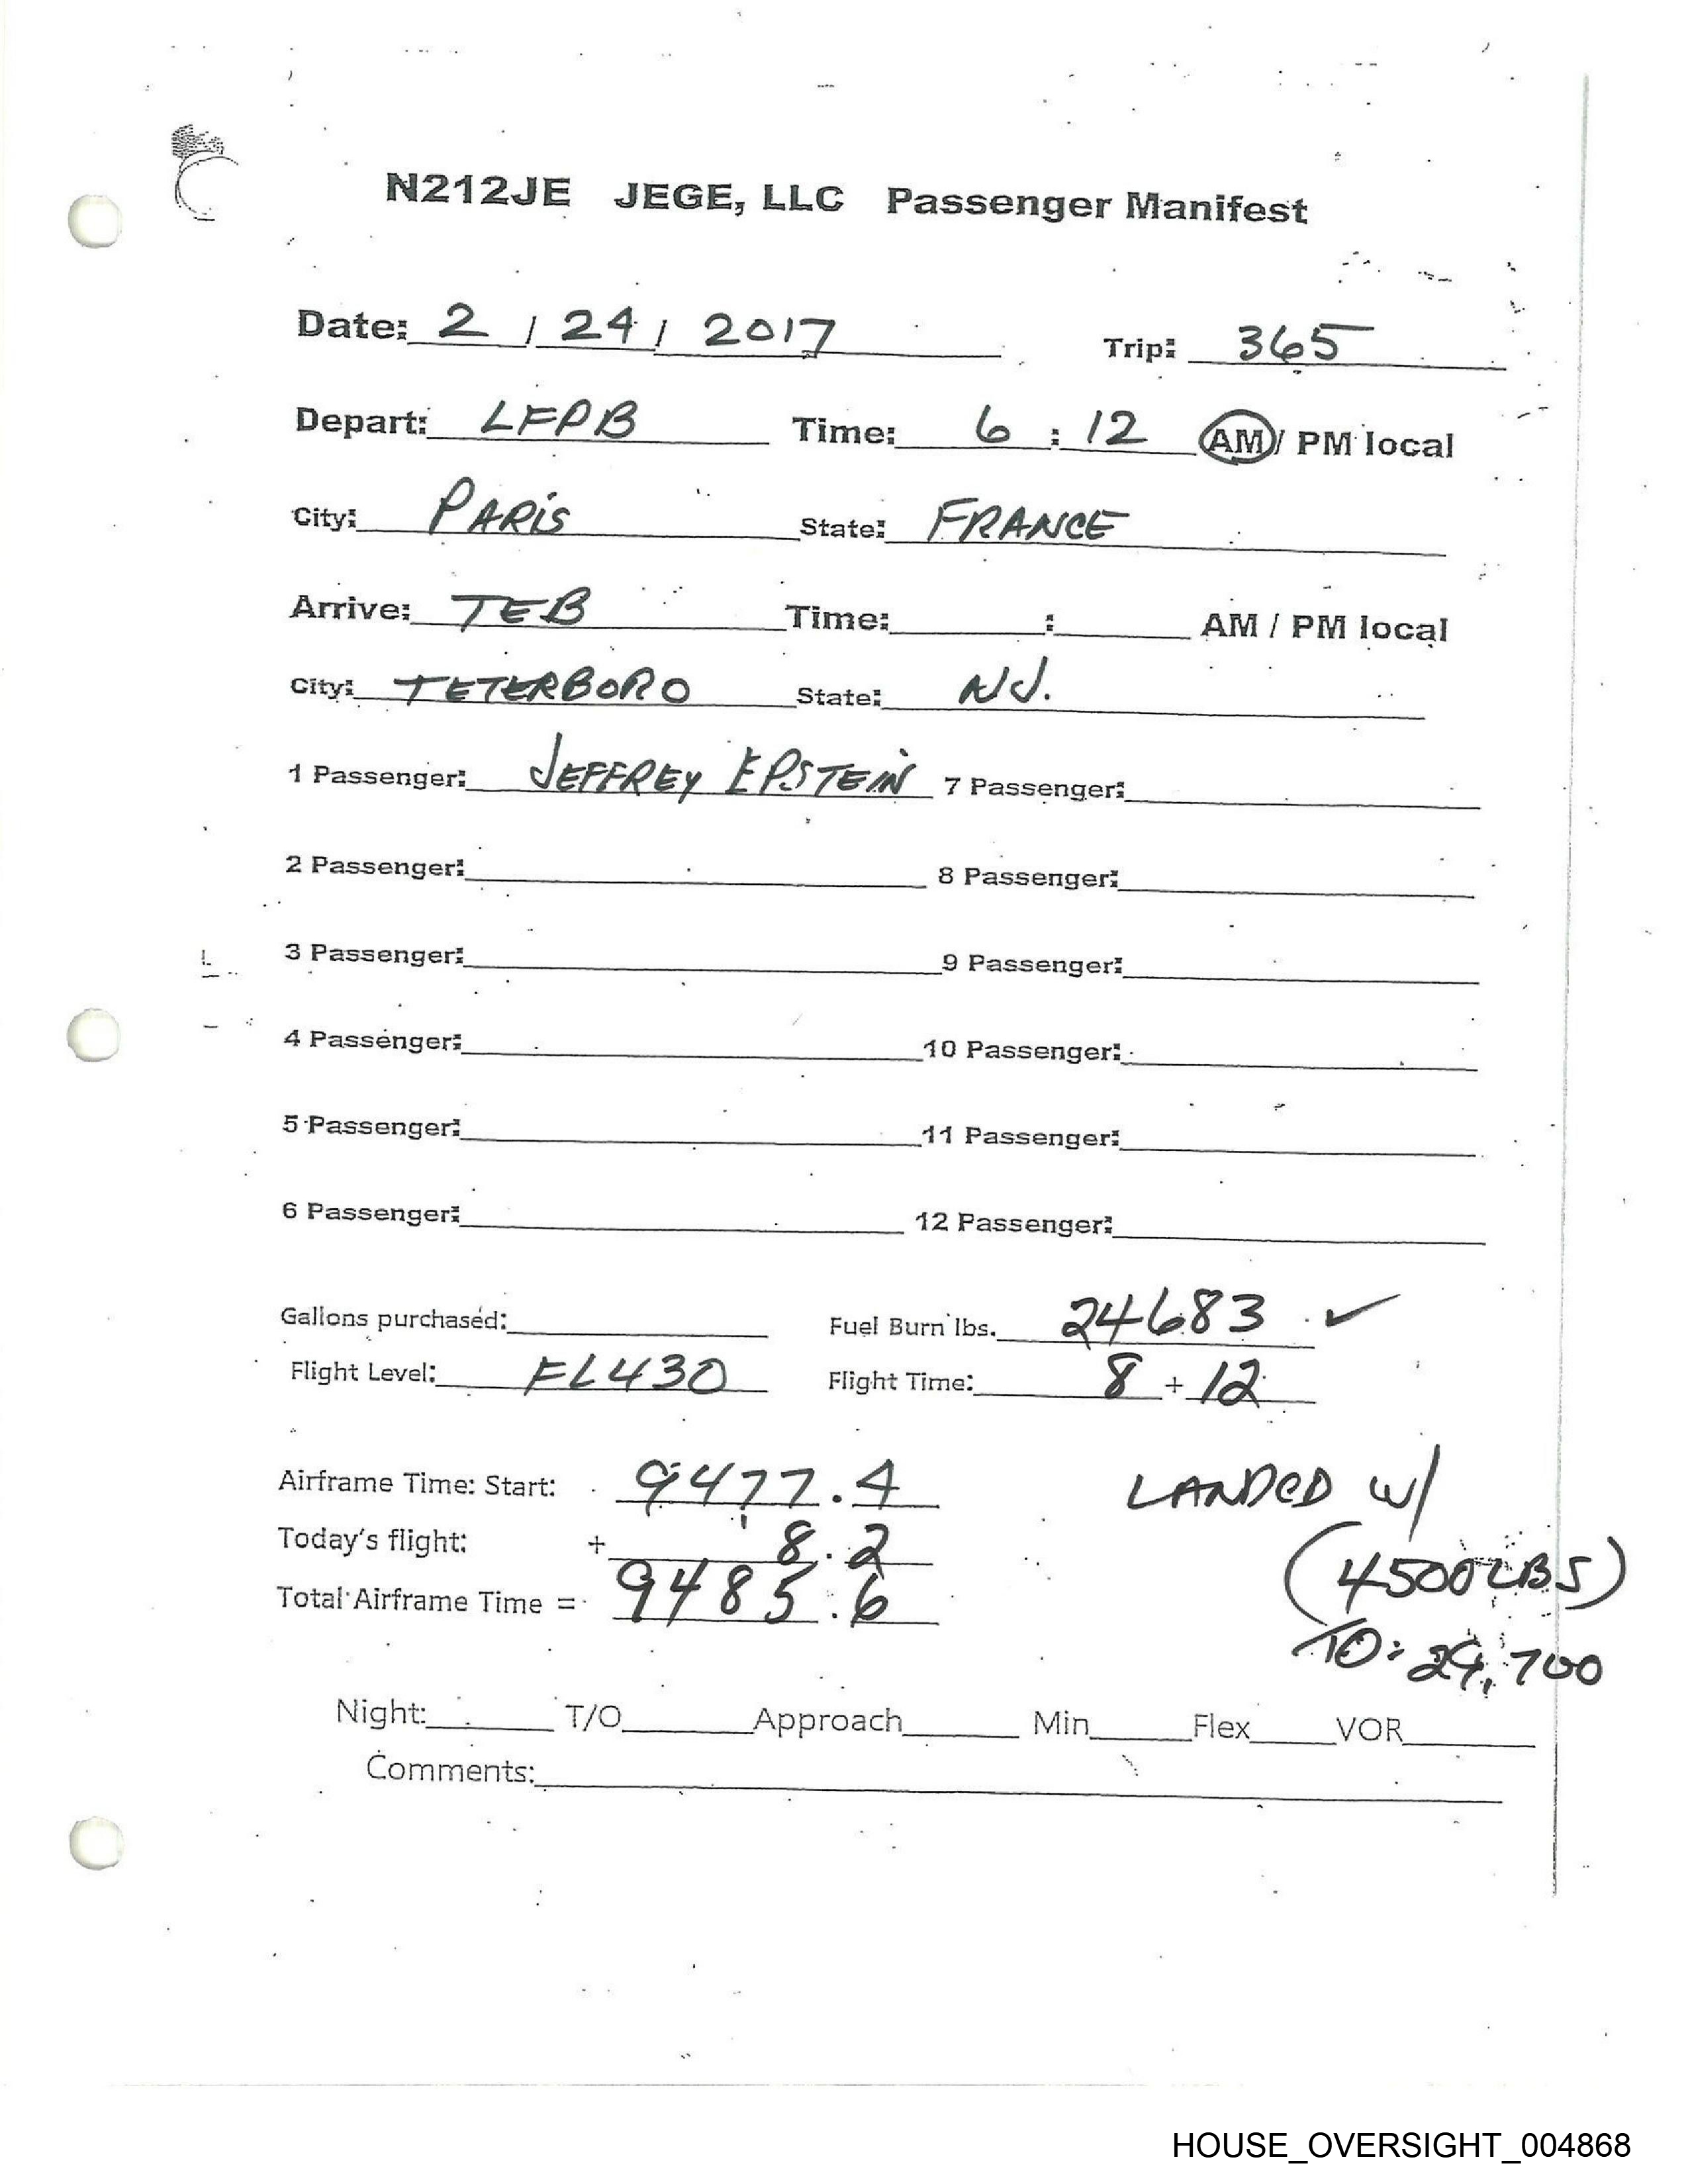 N212JE JEGE, LLC Passenger Manifest
Date: 2 / 24 / 2017 Trip: 365
Depart: LFPB Time: 6 : 12 AM / PM local
City: PARIS State: FRANCE
Arrive: TEB Time: : AM / PM local
City: TETERBORO State: NJ.
1 Passenger: JEFFREY EPSTEIN 7 Passenger:
2 Passenger: 8 Passenger:
3 Passenger: 9 Passenger:
4 Passenger: 10 Passenger:
5 Passenger: 11 Passenger:
6 Passenger: 12 Passenger:
Gallons purchased: Fuel Burn lbs. 24683 ✓
Flight Level: FL430 Flight Time: 8 + 12
Airframe Time: Start: 9477.4 LANDED W/
Today's flight: + 8.2
(4500 LBS)
Total Airframe Time = 9485.6
TO: 29,700
Night: T/O Approach Min Flex VOR
Comments:
HOUSE_OVERSIGHT_004868